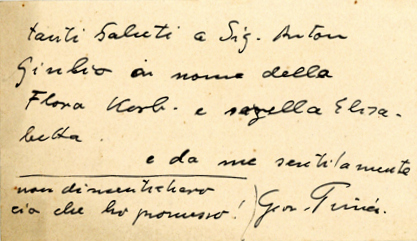 tanti saluti a Sig. Anton
Giulio in nome della
Flora Korb. e sorella Elisa-
betta.
e da me sentitamente
non dimentichero
cio che ho promesso!
Geor.